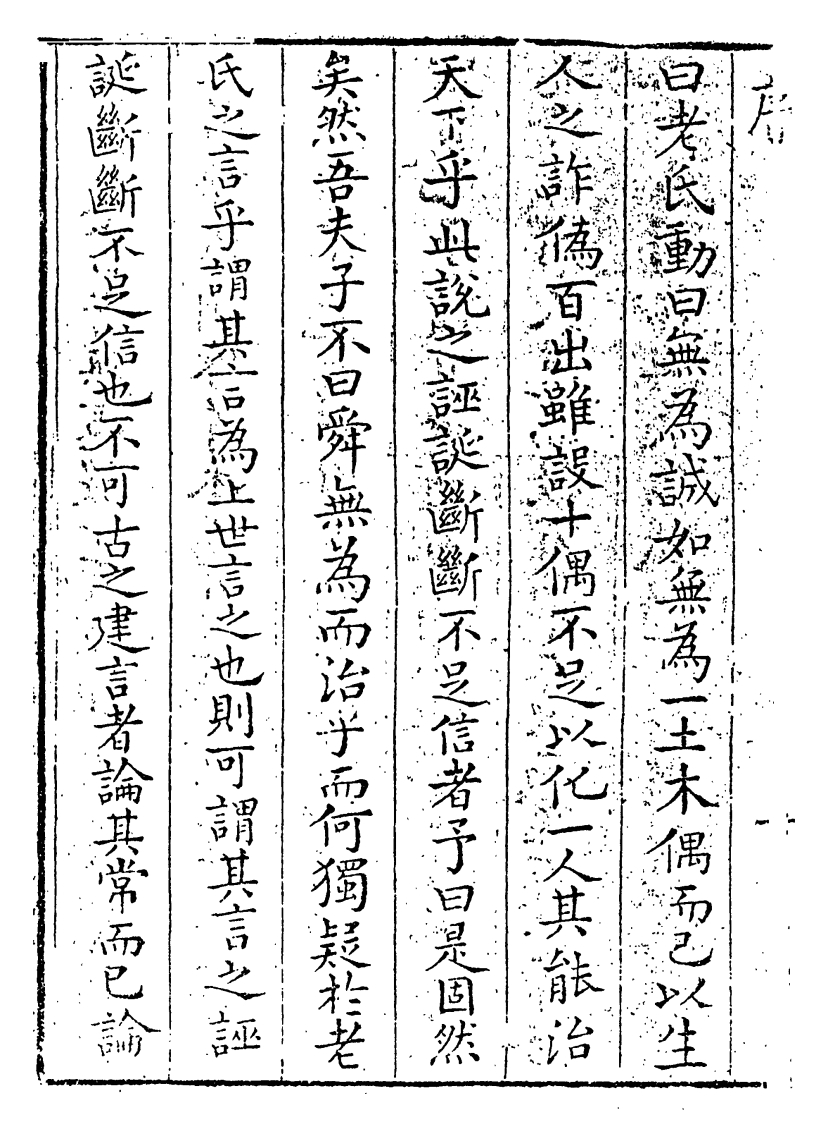 序
曰老氏動曰無為誠如無為一土木偶而已以生
人之詐僞百出雖設十偶不足以化一人其能治
天下乎此說之誣誕斷斷不足信者予曰是固然
矣然吾夫子不曰舜無為而治乎而何獨疑於老
氏之言乎謂其言為上世言之也則可謂其言之誣
誕斷斷不足信也不可古之建言者論其常而已論